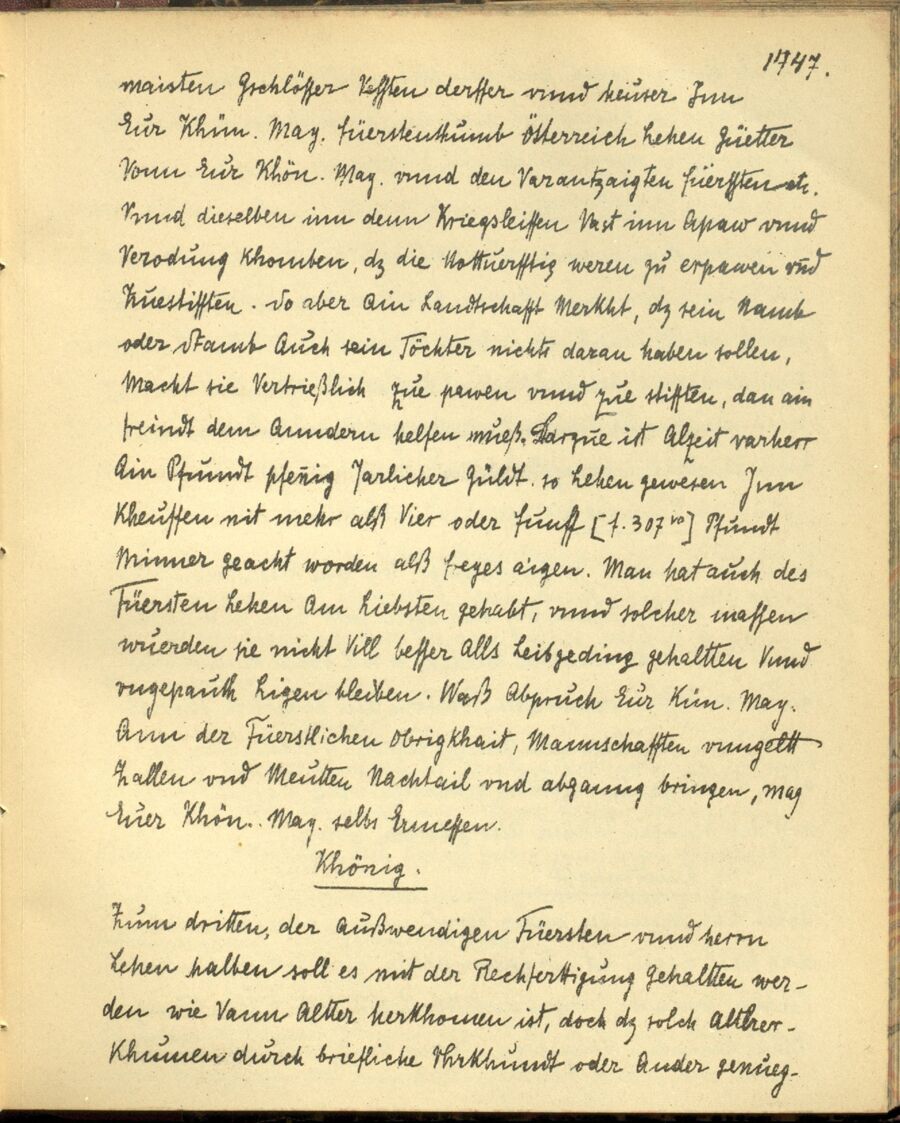 1747.
maisten Gschlösser Vessten derffer vnnd heuser Inn
Eur Khün. May. füerstenthumb Österreich Lehen Güetter
Vonn Eur Khön. May. vnnd den Varantzaigten füerssten etc.
Vnnd dieselben inn denn Kriegsleiffen Vast inn Apaw vnnd
Verodung khomben, dz die Nottuerfftig weren zu erpawen vnd
Zuestifften. So aber Ain Landtschafft Merkht, dz sein Namb
oder Stamb Auch sein Töchter nichts daran haben sollen,
Macht sie Vertrießlich zue pawen vnnd zue stifften, dan ain
freindt dem Anndern helfen mueß. Darzue ist Alzeit varherr
Ain Pfundt pfenig Jarlicher Güldt. so Lehen gewesen Inn
Kheuffen nit mehr alß Vier oder funff [f. 307 vo] Pfundt
Minner geacht worden alß freyes aigen. Man hat auch des
Füersten Lehen Am Liebsten gehabt, vnnd solcher massen
wuerden sie nicht Vill besser Alls Leibgeding gehaltten Vnnd
vngepauth Ligen bleiben. Waß Abpruch Eur Kün. May.
Ann der Füerstlichen Obrigkhait, Mannschafften vnngeltt
Zallen vnd Meutten Nachtail vnd abganng bringen, mag
Euer Khön.. May. selbs Ermessen.
Khönig.
Zum dritten, der Außwendigen Füersten vnnd herrn
Lehen halben soll es mit der Rechfertigung Gehaltten wer-
den wie Vann Altter herkhomen ist, doch dz solch Alther-
Khumen durch briefliche Vhrkhundt oder Ander genueg-